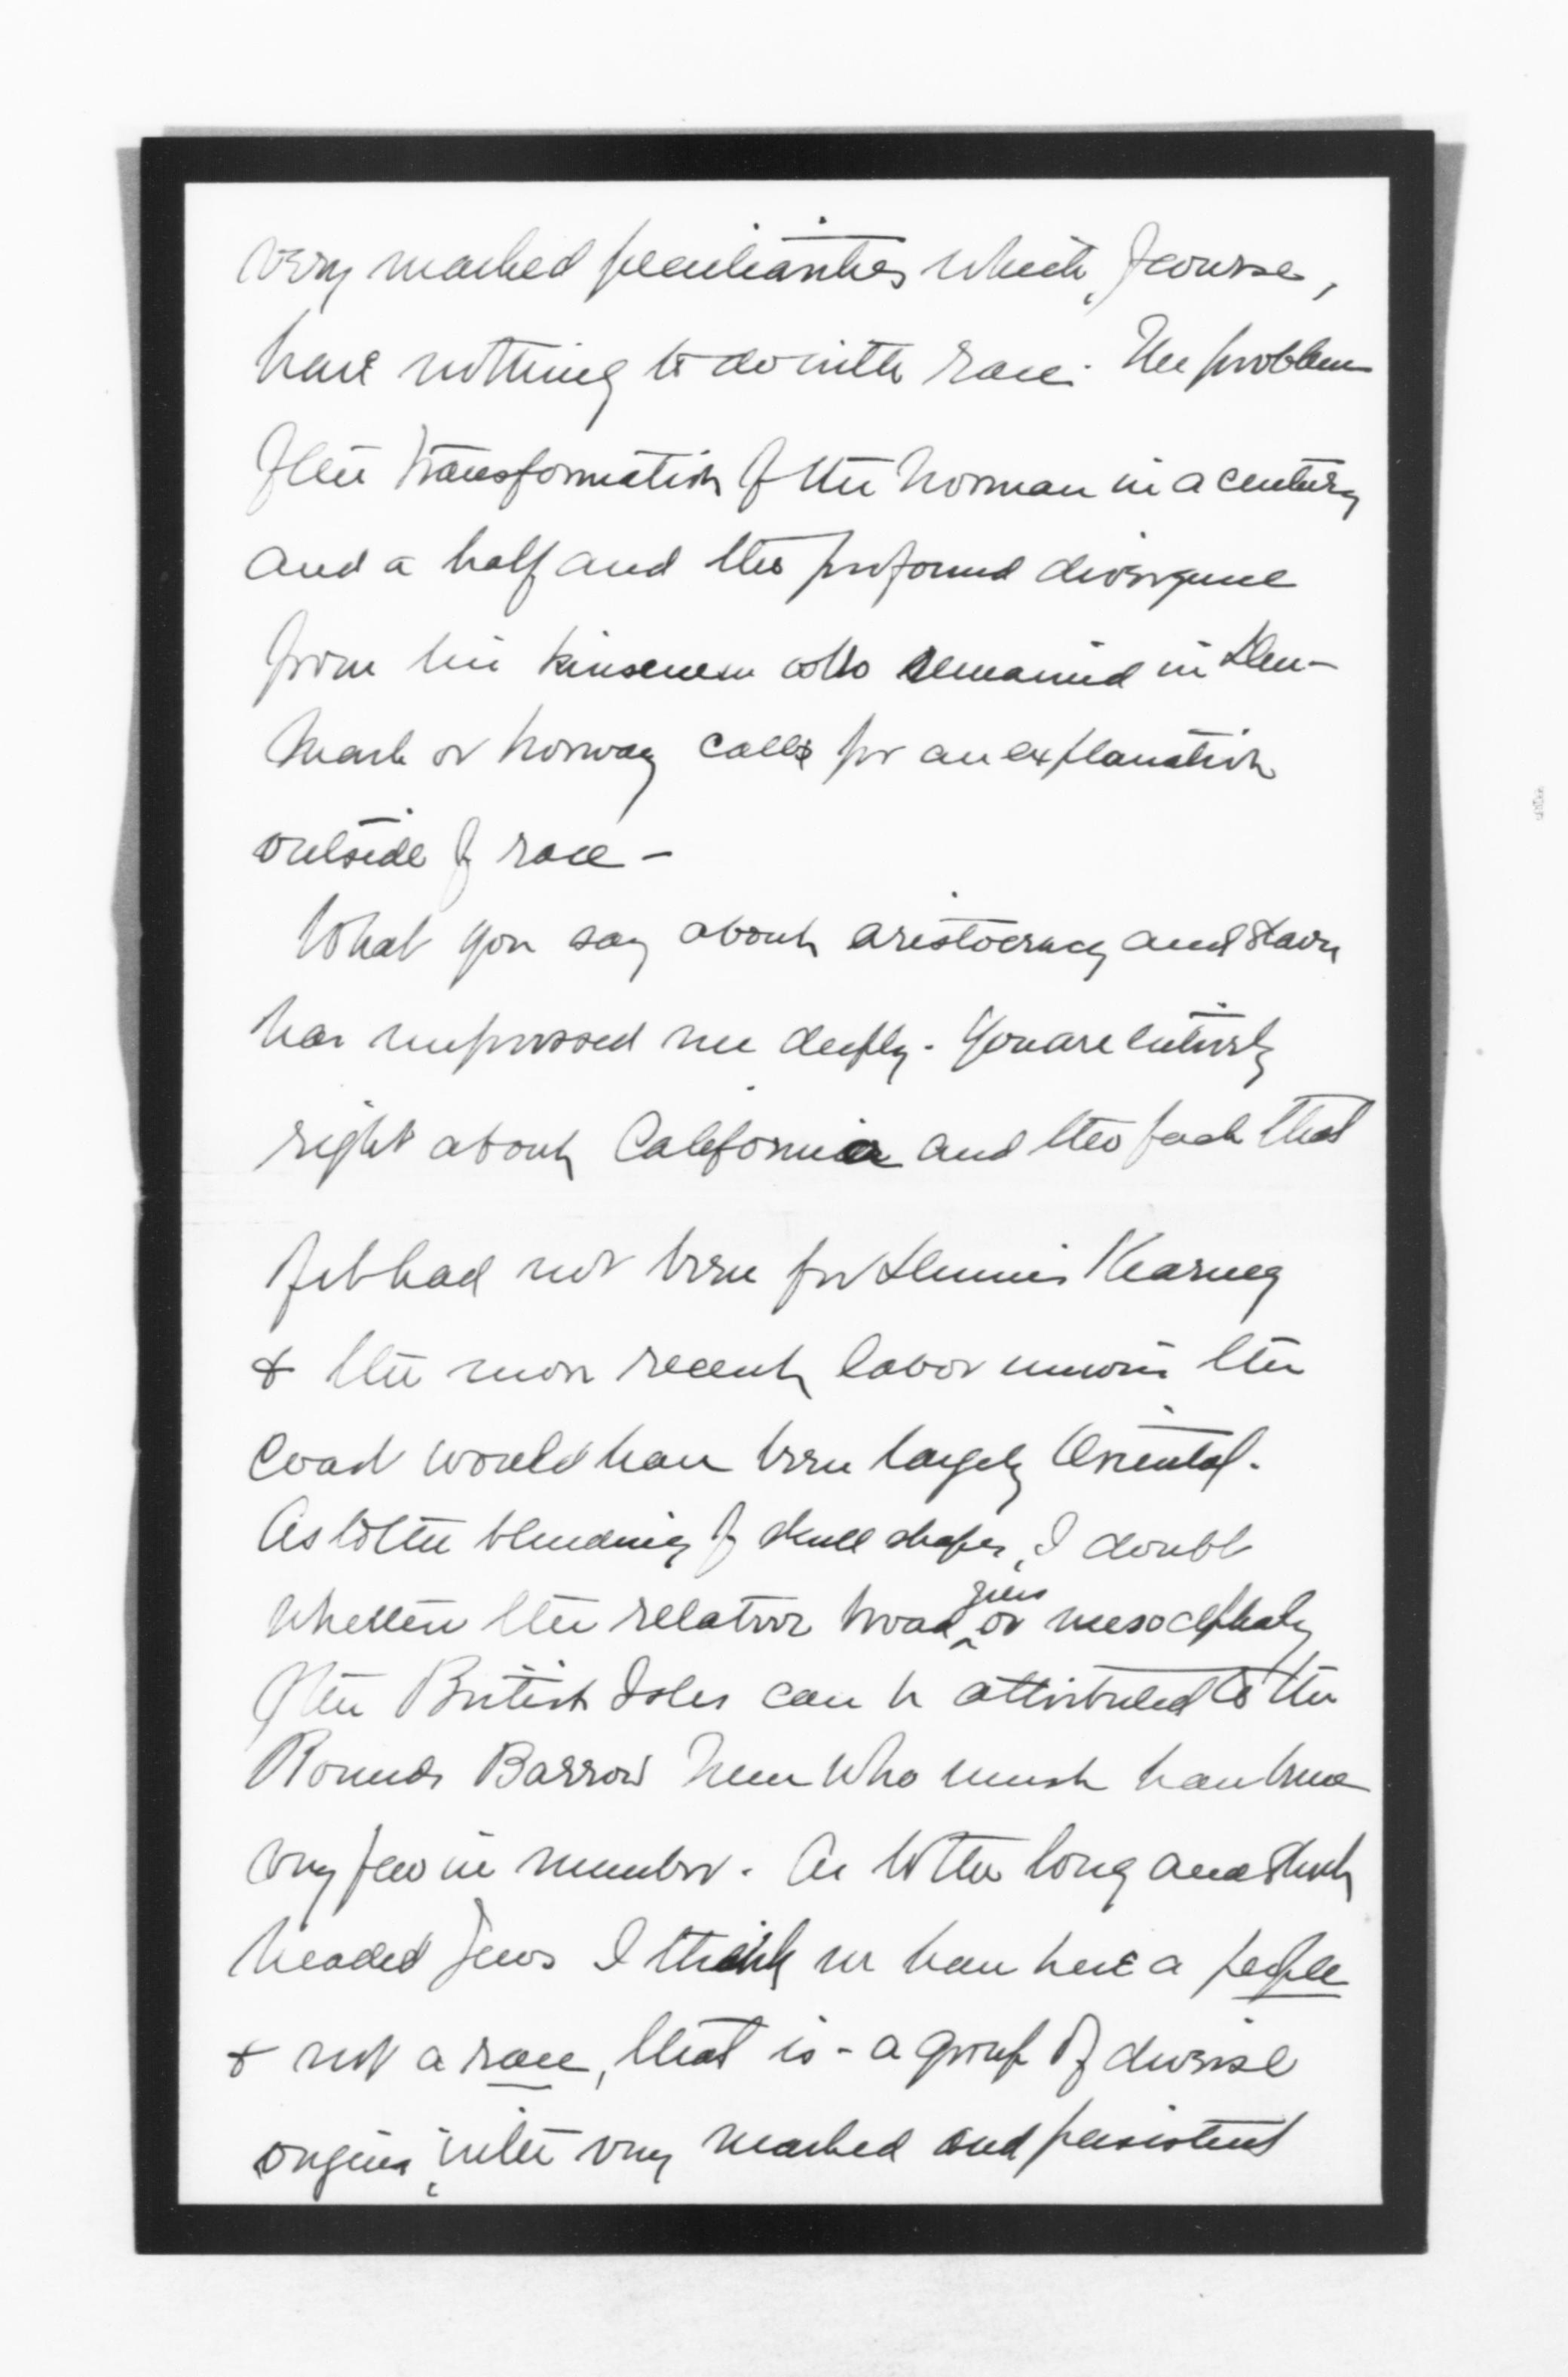 very marked peculiarities which, of course,
have nothing to do with race. The problem
of the transformation of the Norman in a century
and a half and the profound divergence
from his kinsmen who remained in Den-
mark or Norway calls for an explanation
outside of race -
What you say about aristocracy and slavery
has impressed me deeply. You are entirely
right about California and the fact that
if it had not been for Dennis Kearney
& the more recent labor unions the
Coast would have been largely Oriental.
As to the blending of skull shapes, I doubt
whether the relative broad or mesocephaly
of the British Isles can be attributed to the
Round Barrow Men who must have been
very few in number. As to the long and short
headed Jews I think we have here a people
& not a race, that is - a group of diverse
origins, with very marked and persistent